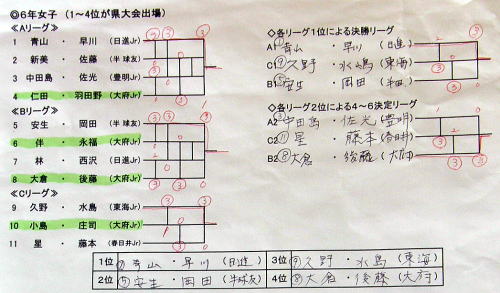 ◎6年女子 (1～4位が県大会出場)
≪Aリーグ≫
1 青山 ・ 早川 (日進Jr)
2 新美 ・ 佐藤 (半球友)
3 中田島 ・ 佐光 (豊明Jr)
4 仁田 ・ 羽田野 (大府Jr)
≪Bリーグ≫
5 安生 ・ 岡田 (半球友)
6 伴 ・ 永福 (大府Jr)
7 林 ・ 西沢 (日進Jr)
8 大倉 ・ 後藤 (大府Jr)
≪Cリーグ≫
9 久野 ・ 水島 (東海Jr)
10 小島 ・ 庄司 (大府Jr)
11 星 ・ 藤本 (春日井Jr)
◇各リーグ1位による決勝リーグ
A1 ①青山 ・ 早川 (日進)
C1 ⑨久野 ・ 水嶋 (東海)
B1 ⑤安生 ・ 岡田 (半田)
◇各リーグ2位による4～6決定リーグ
A2 ③中田島 ・ 佐光 (豊明)
C2 ⑪星 ・ 藤本 (春日井)
B2 ⑧大倉 ・ 後藤 (大府)
1位 ①青山 ・ 早川 (日進) 3位 ⑨久野 ・ 水島 (東海)
2位 ⑤安生 ・ 岡田 (半球友) 4位 ⑧大倉 ・ 後藤 (大府)